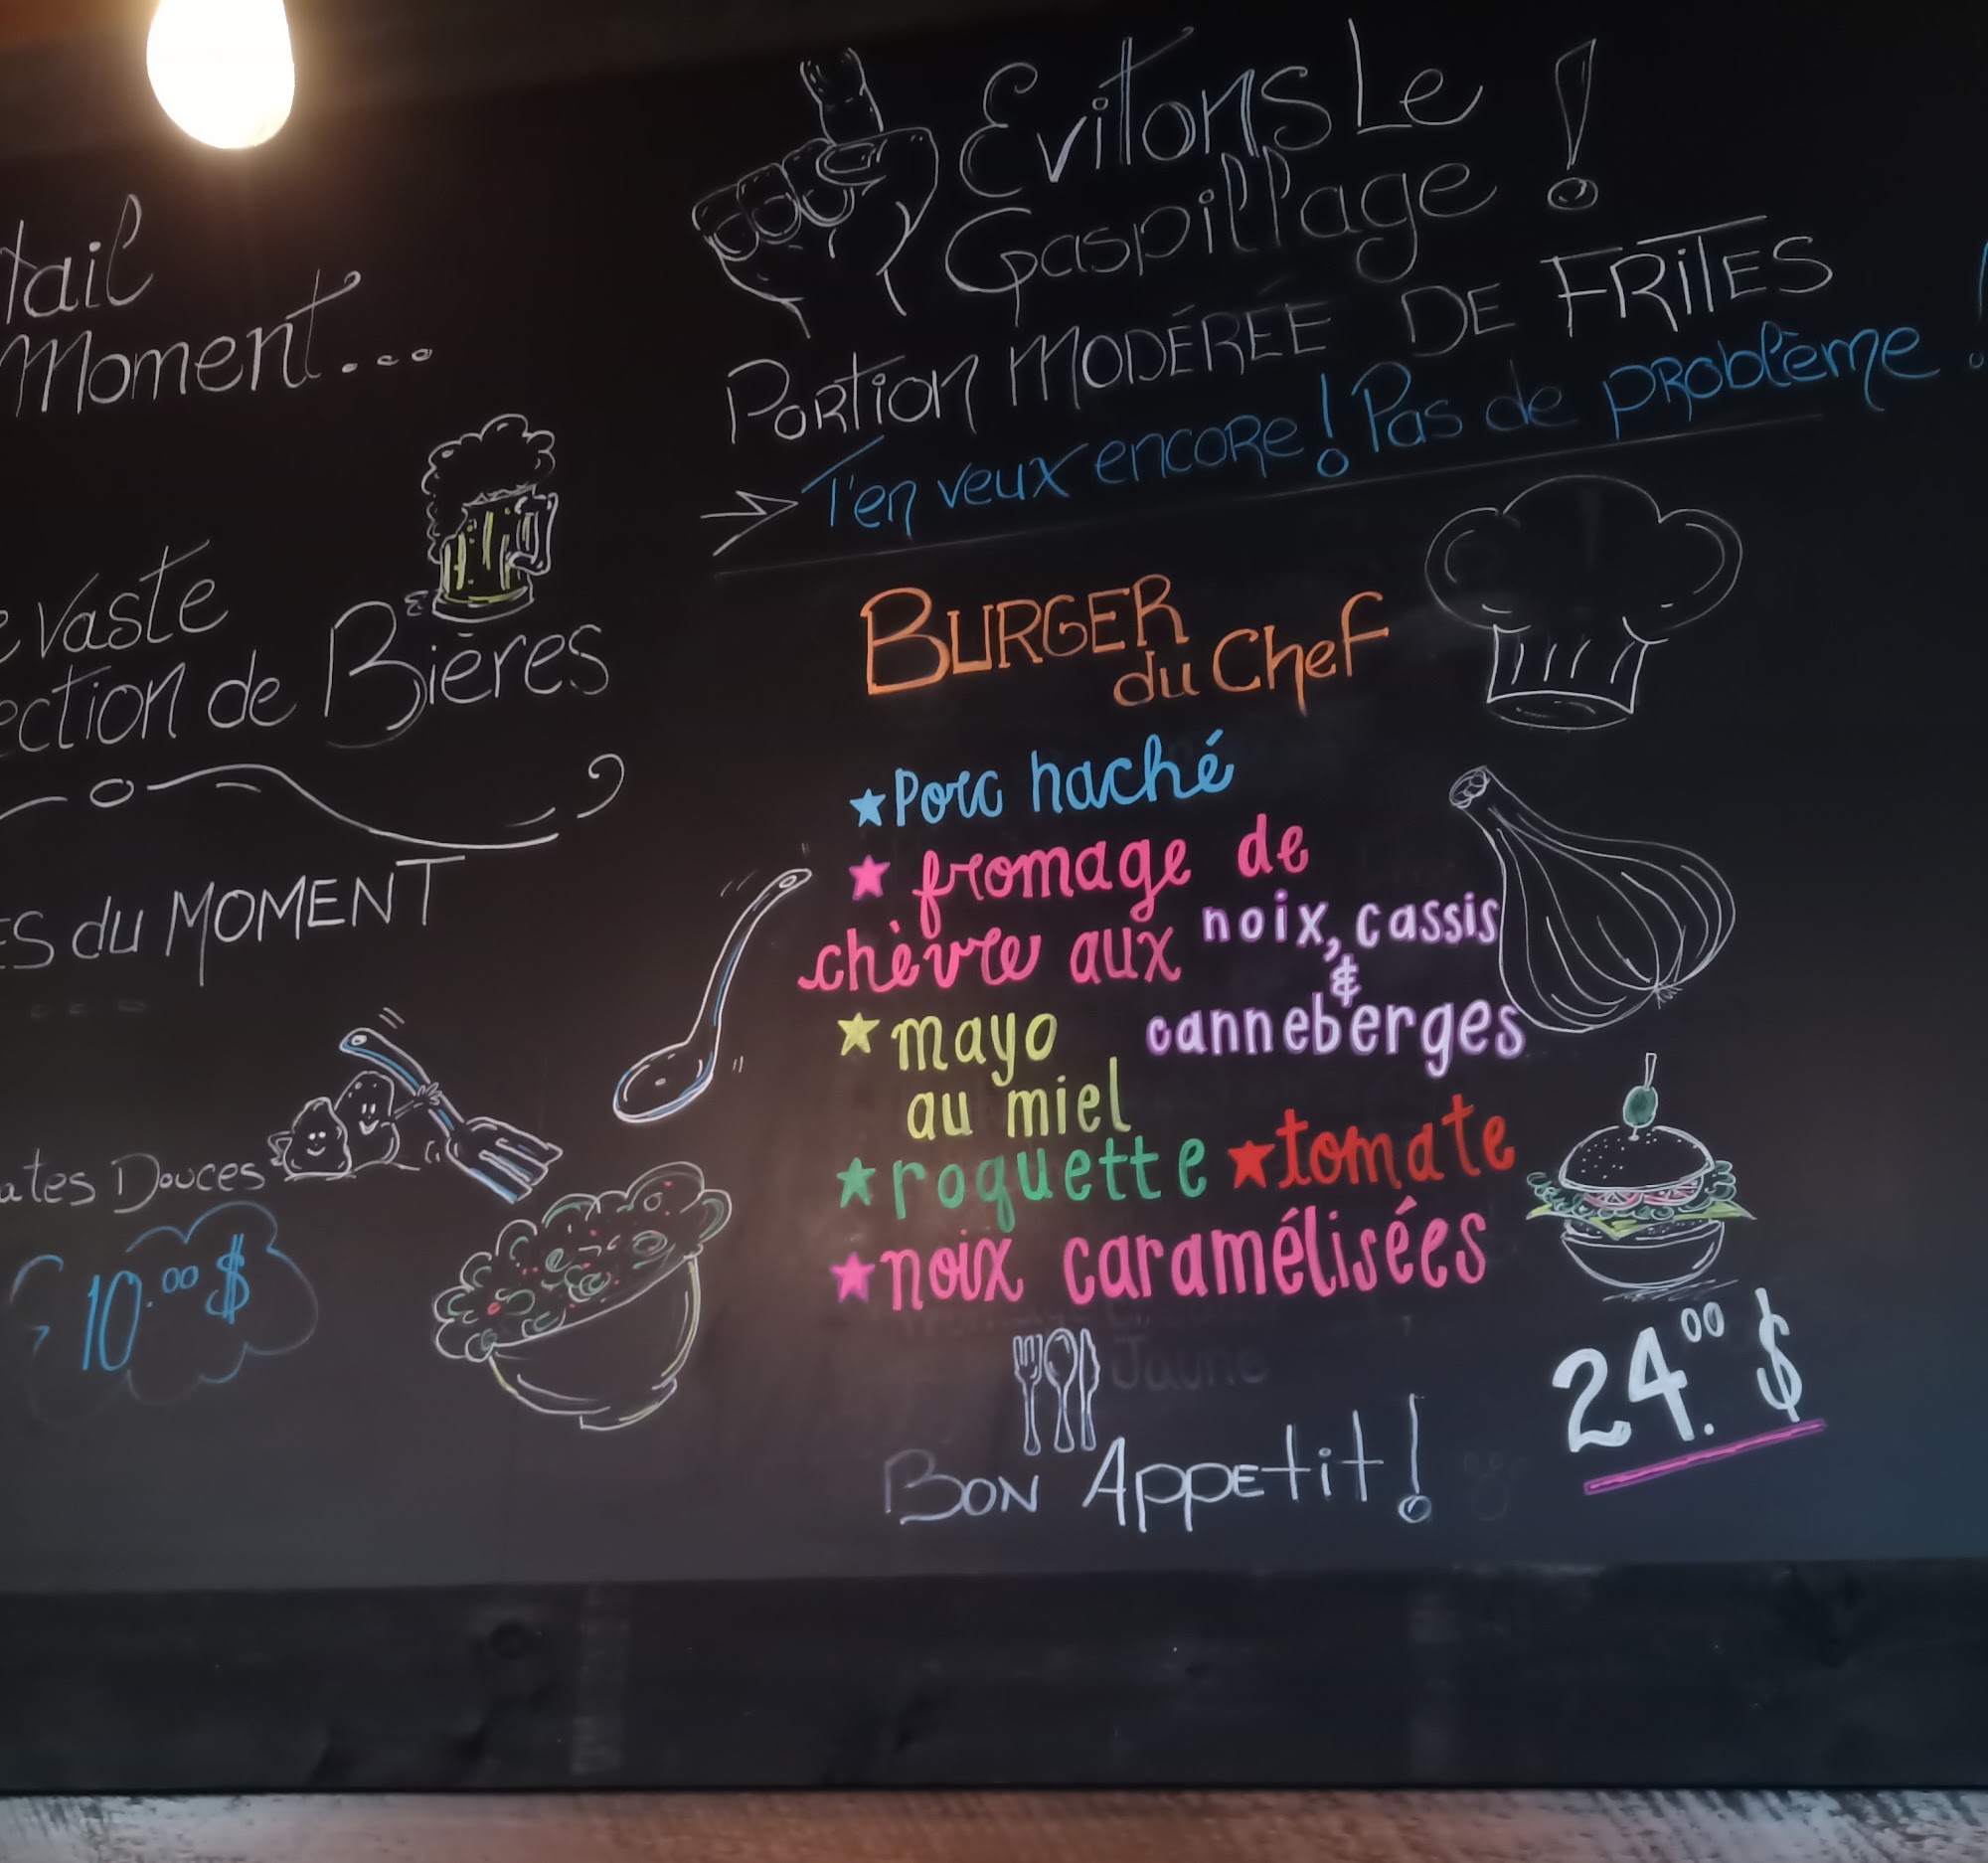 tail
Moment...
vaste
ection de Bières
ES du MOMENT
ates Douces
10.00 $
Evitons Le
Gaspillage !
PORTION MODÉRÉE DE FRITES
→ T'en veux encore! Pas de problème !
BURGER
du Chef
★ Porc haché
★ fromage de
chèvre aux noix, cassis
&
canneberges
★ mayo
au miel
★ roquette ★ tomate
★ noix caramélisées
Jaune
24.00 $
BON APPEtit!